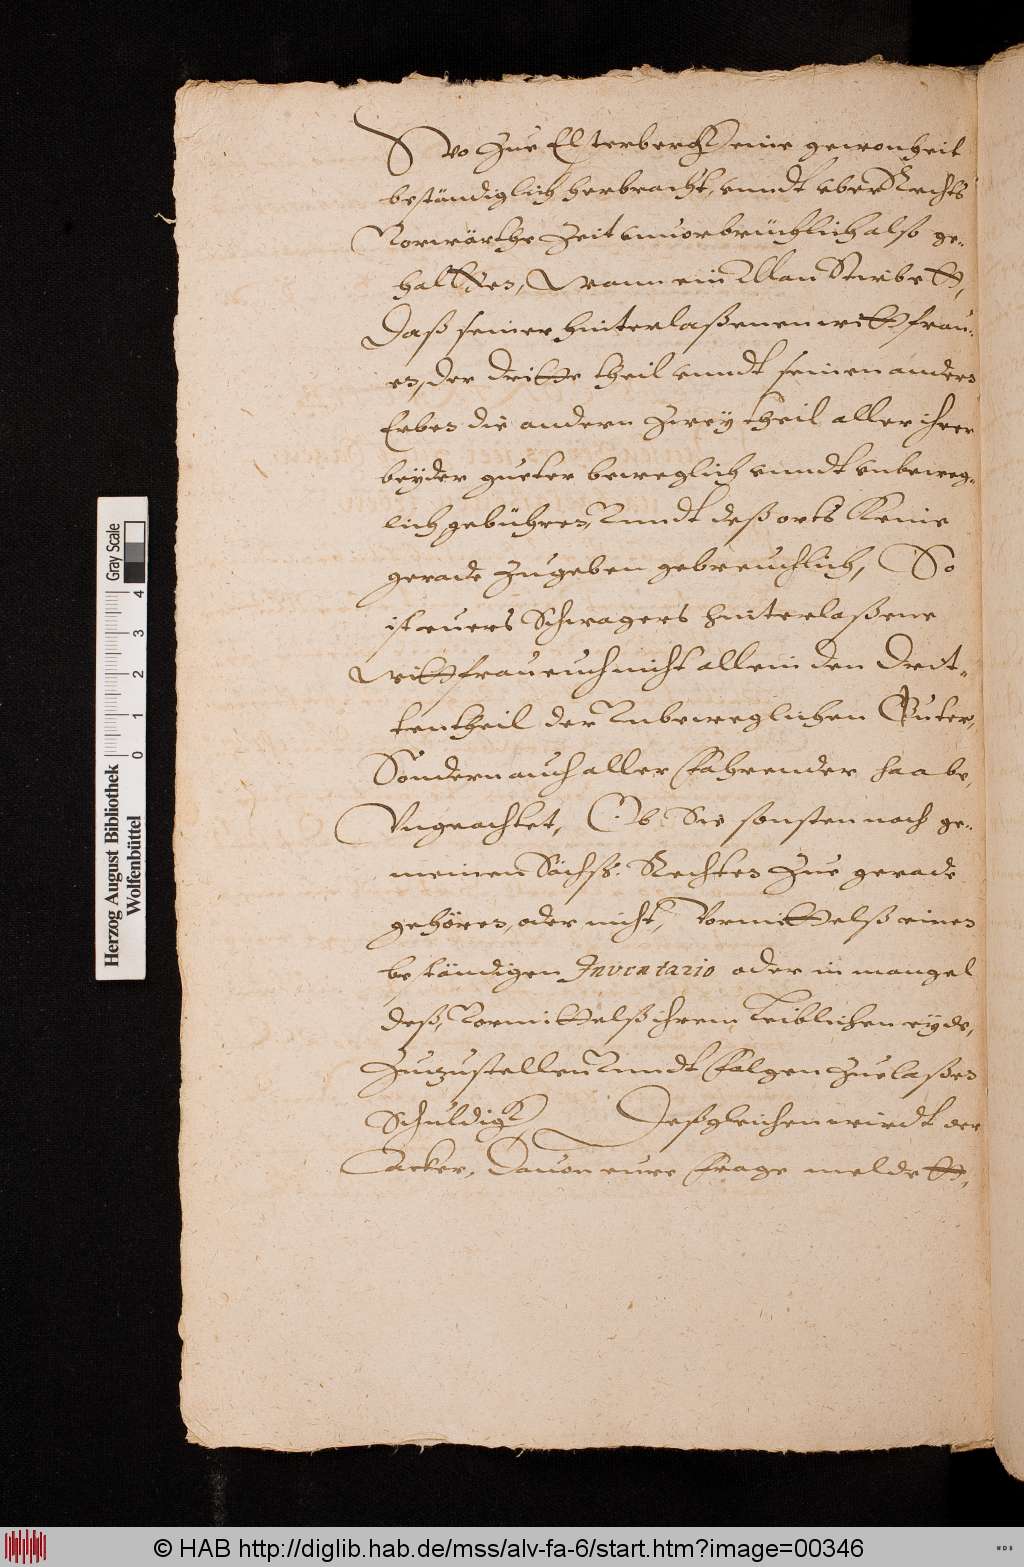 So zue Elsterbergk eine gewonheit
bestendiglich herbracht, vnndt vber Rechts
Vorwärthe Zeit vnuorbrüchlich also ge-
haltten, Wann ein Man Stirbett,
Daß seiner hinterlaßenen wittfrau-
en, der dritte theil vnndt seinen andern
Erben die andern zwey theil aller ihrer
beyder gueter beweglich vnndt vnbeweg-
lich gebühren, Vnndt deß orts keine
gerade zugeben gebreuchlich, So
ist euers Schwagers hinterlaßene
Wittfrau euch nicht allein den Drit-
tentheil der Vnbeweglichen Guter,
Sondern auch aller fahrender haabe,
Vngeachtet, Ob Sie sonsten nach ge-
meinen Sächß: Rechten zue gerade
gehören, oder nicht, Vormittelß eines
bestendigen Inventario oder in mangel
deß, Vormittelß ihrem Leiblichen eyde,
Zuzustellen Vnndt folgen zuelaßen
Schuldigk Deßgleichen wirdt der
Acker, Dauon eure frage meldett,
Herzog August Bibliothek
Wolfenbüttel
0 1 2 3 4
Gray Scale
© HAB http://diglib.hab.de/mss/alv-fa-6/start.htm?image=00346
WDB